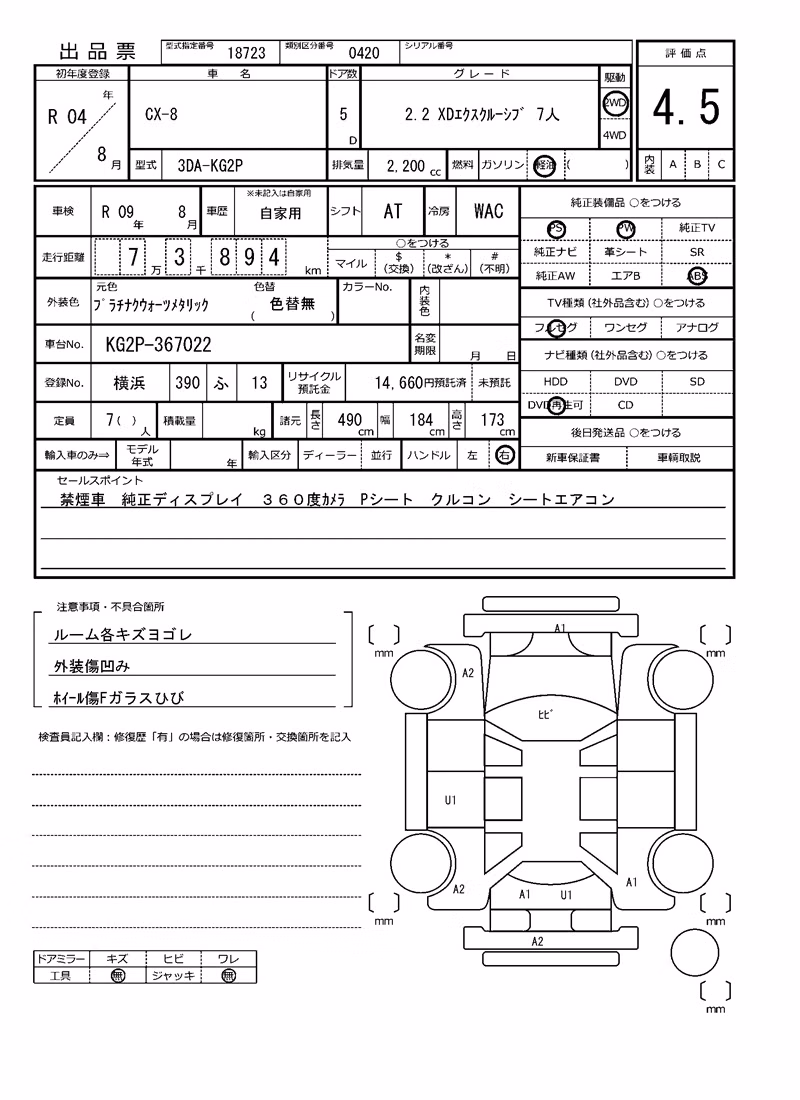 出品票 型式指定番号 18723 類別区分番号 0420 シリアル番号
評価点
初年度登録 車名 ドア数 グレード 駆動
R 04 年 8 月 CX-8 5 D 2.2 XDエクスクルーシブ 7人 2WD 4WD
4.5
型式 3DA-KG2P 排気量 2,200 cc 燃料 ガソリン 軽油 ( )
内装 A B C
車検 R 09 年 8 月 車歴 ※未記入は自家用 自家用 シフト AT 冷房 WAC
純正装備品 ○をつける
PS PW 純正TV
走行距離 7 万 3 千 8 9 4 km
○をつける
マイル $ (交換) * (改ざん) # (不明)
純正ナビ 革シート SR
純正AW エアB ABS
外装色 元色 プラチナクウォーツメタリック 色替 ( 色替無 ) カラーNo. 内装色
TV種類 (社外品含む) ○をつける
フルセグ ワンセグ アナログ
車台No. KG2P-367022 名変期限 月 日
ナビ種類 (社外品含む) ○をつける
登録No. 横浜 390 ふ 13 リサイクル預託金 14,660円預託済 未預託
HDD DVD SD
DVD再生可 CD
定員 7( ) 人 積載量 kg 諸元 長さ 490 cm 幅 184 cm 高さ 173 cm
後日発送品 ○をつける
輸入車のみ⇒ モデル年式 年 輸入区分 ディーラー 並行 ハンドル 左 右
新車保証書 車輌取説
セールスポイント
禁煙車 純正ディスプレイ 360度カメラ Pシート クルコン シートエアコン
注意事項・不具合箇所
ルーム各キズヨゴレ
外装傷凹み
ホイール傷Fガラスひび
検査員記入欄：修復歴「有」の場合は修復箇所・交換箇所を記入
A1
mm mm
A2
ヒビ
U1
A2 A1 U1 A1
mm mm
A2
mm
ドアミラー キズ ヒビ ワレ
工具 無 ジャッキ 無